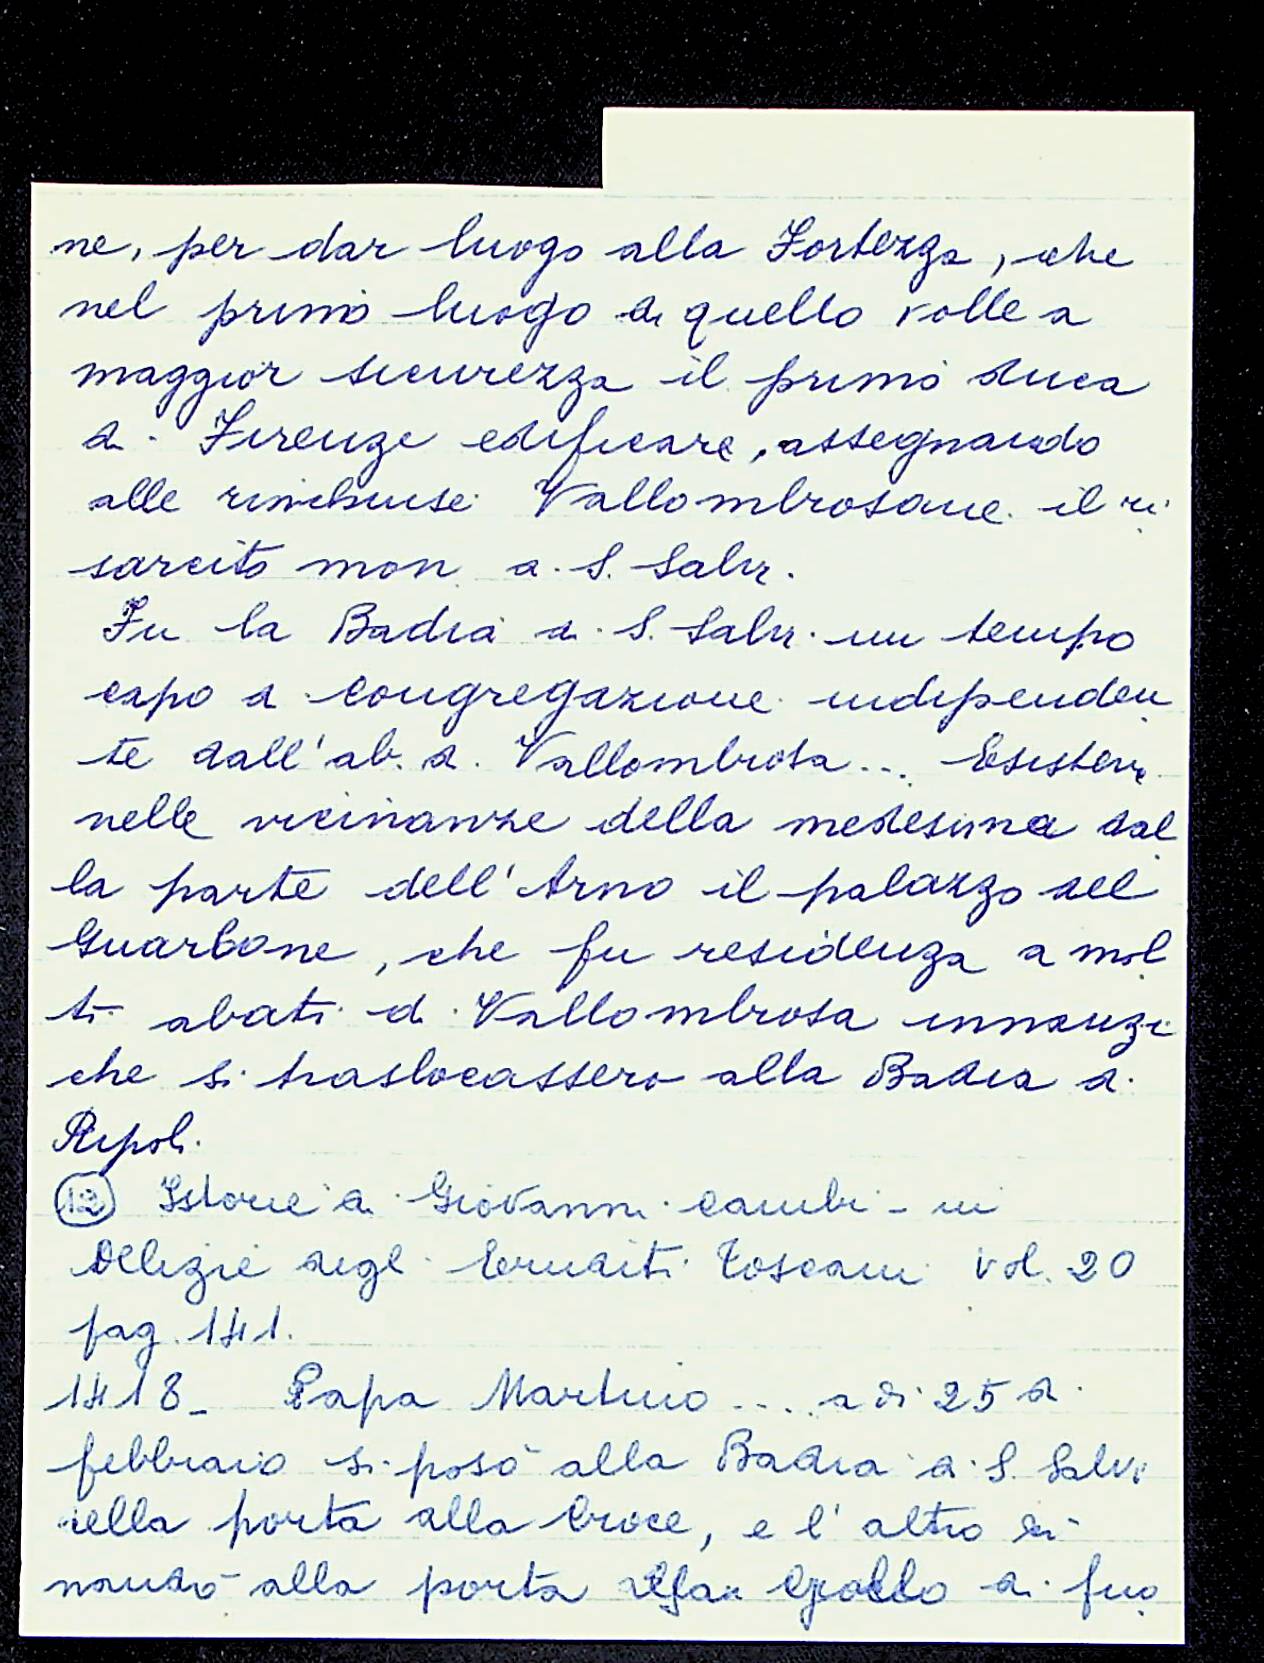 ne, per dar luogo alla Fortezza, che
nel primo luogo di quello volle a
maggior sicurezza il primo duca
di Firenze edificare, assegnando
alle rinchiuse Vallombrosane il ri
sarcito mon di S. Salvi.
Fu la Badia di S. Salvi un tempo
capo di congregazione indipenden
te dall'ab. di Vallombrosa... Esisteva
nelle vicinanze della medesima dal
la parte dell'Arno il palazzo del
Guarlone, che fu residenza a mol
ti abati di Vallombrosa innanzi
che si traslocassero alla Badia di
Ripoli.
12 Istorie di Giovanni Cambi - in
Delizie degli Eruditi Toscani vol. 20
pag. 141.
1418_ Papa Martino .... a di 25 di
febbraio si posò alla Badia di S. Salvi
della porta alla Croce, e l'altro dì
mandò alla porta Gallo di fuo